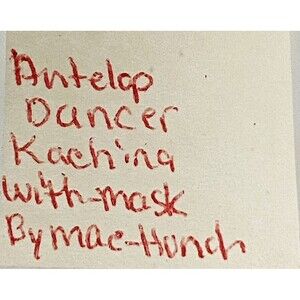 Antelop
Dancer
Kachina
With-mask
By Mac-Hunch